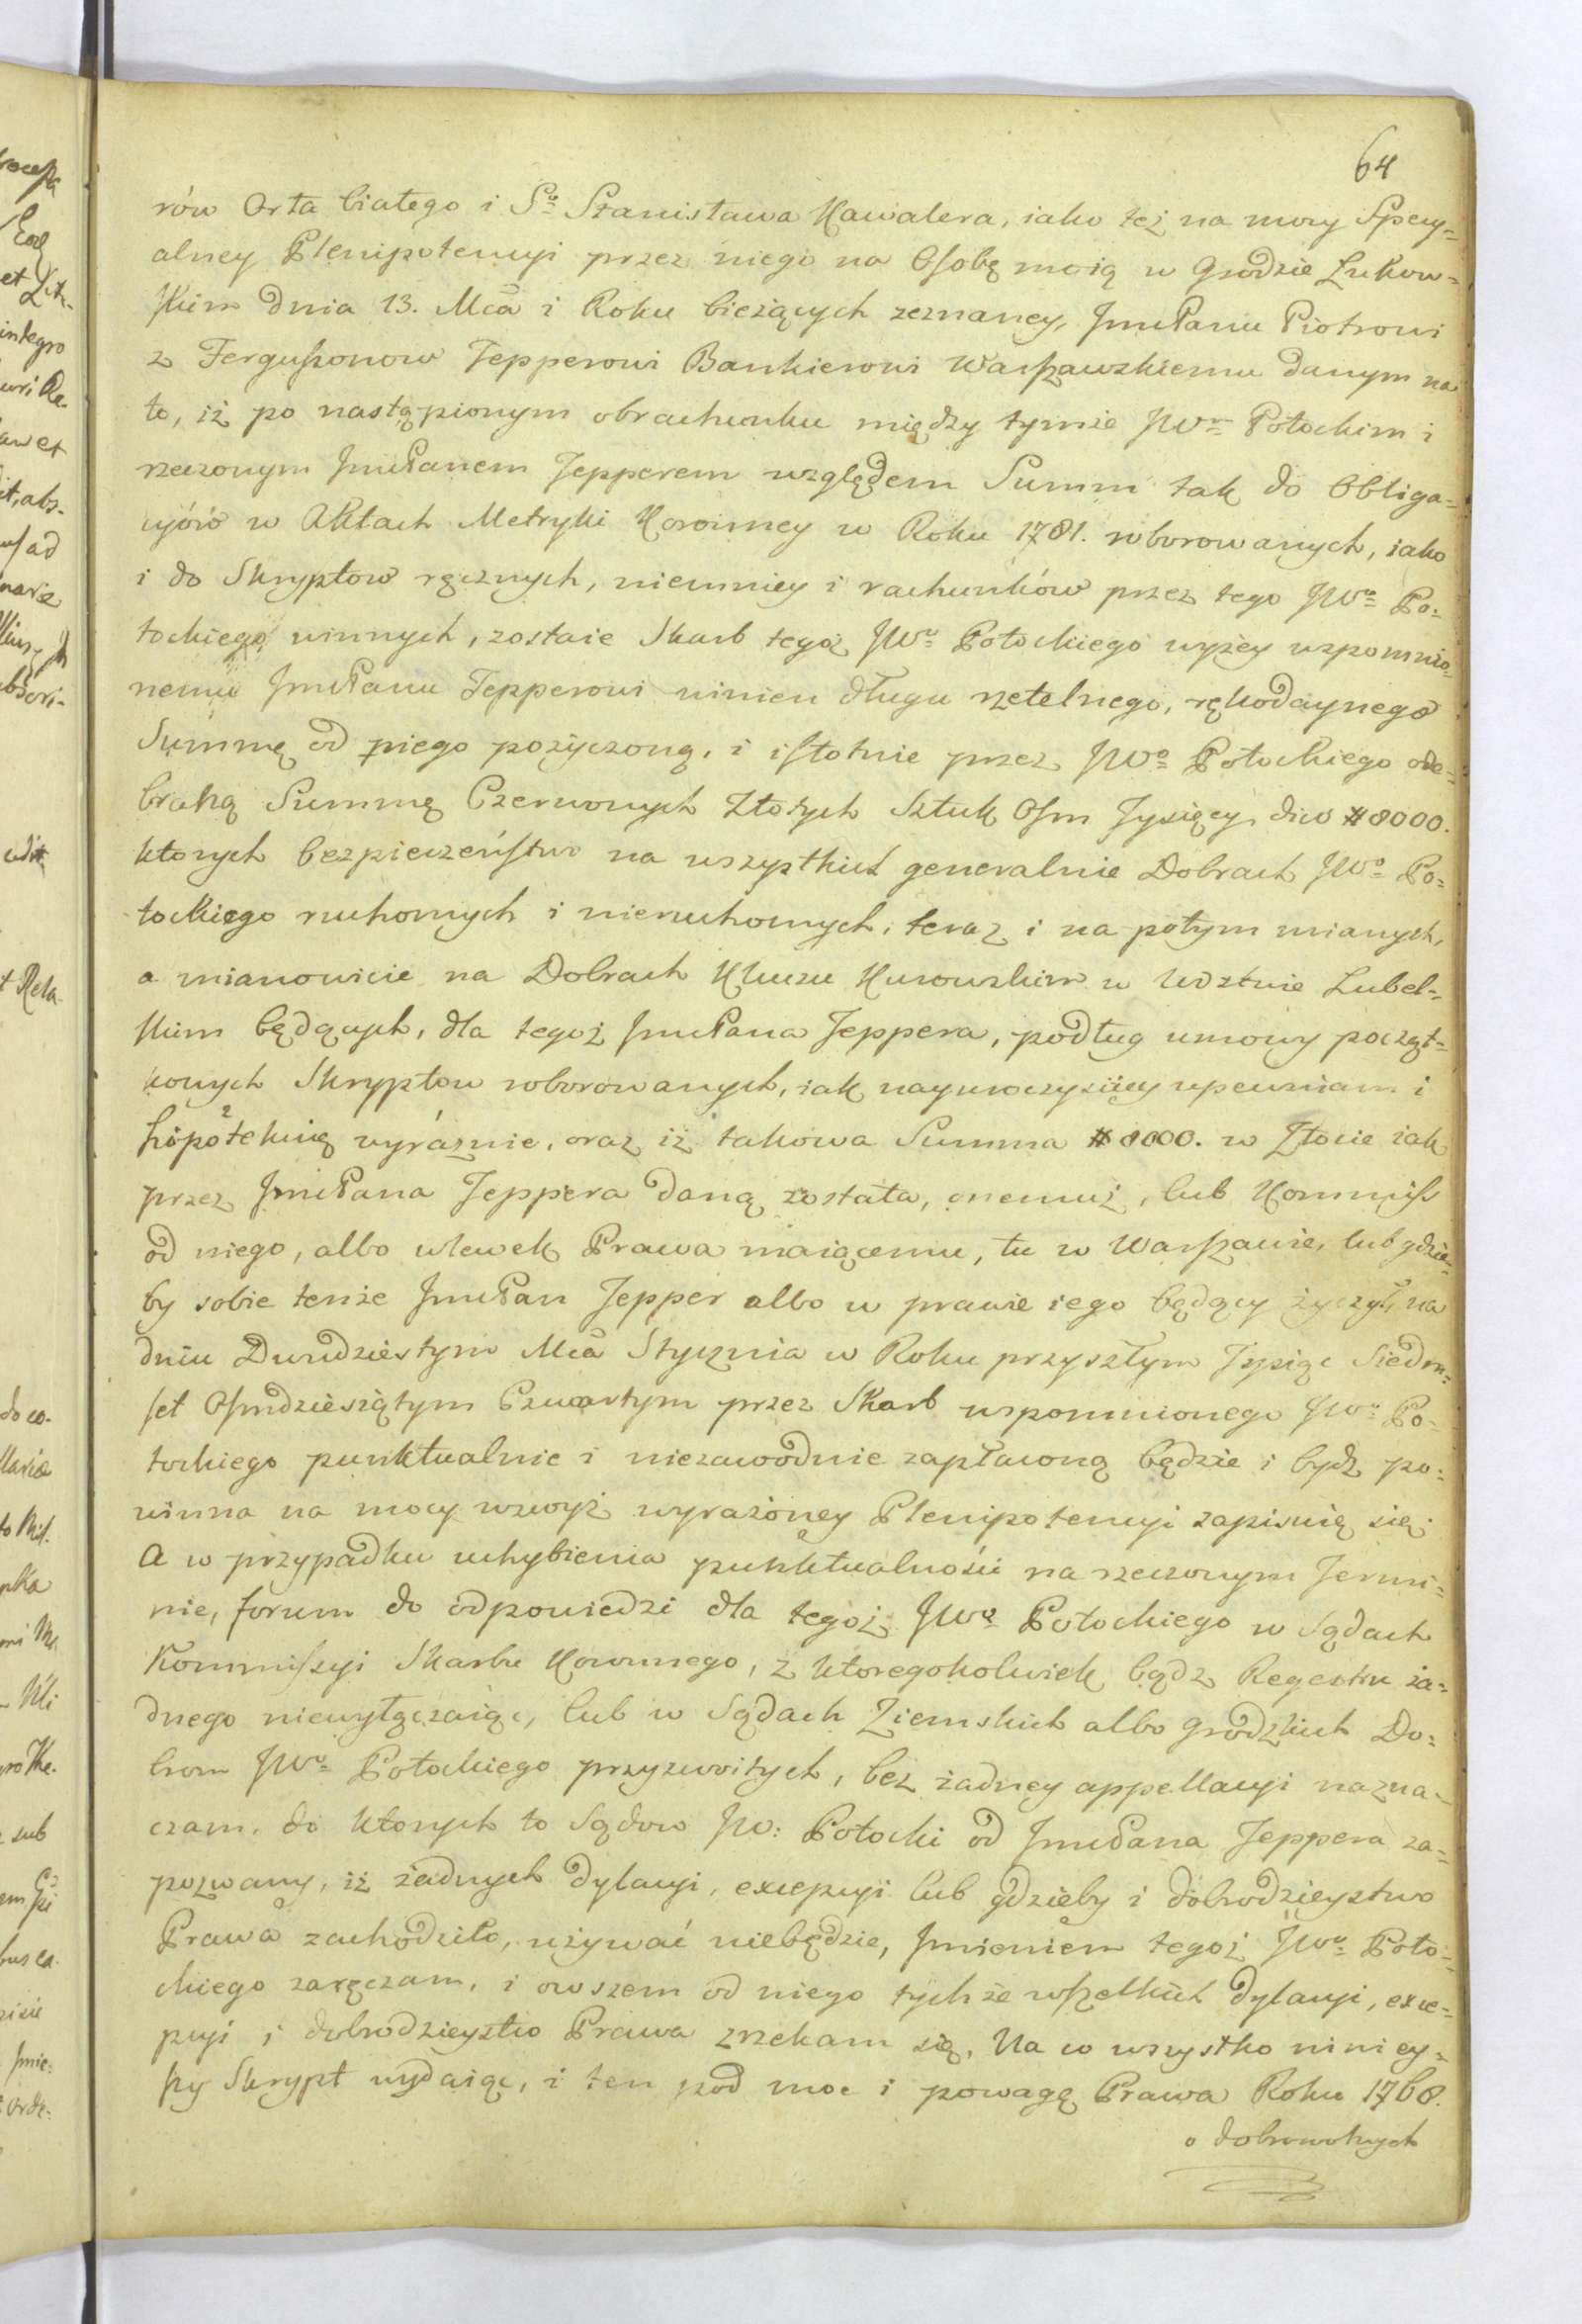 64
rów Orła białego i Sº Stanisława Kawalera, iako też na mocy Specy=
alney Plenipotencyi przez niego na Osobę moią w Grodzie Łukow=
skim dnia 13. Mca i Roku bieżących zeznaney, JmcPanu Piotrowi
z Fergussonow Tepperowi Bankierowi Warszawskiemu danym na
to, iż po nastąpionym obrachunku między tymże JWm Potockim i
rzeczonym JmcPanem Tepperem względem Summ tak do Obliga=
cyiów w Aktach Metryki Koronney w Roku 1781. roborowanych, iako
i do Skryptow ręcznych, niemniey i rachunków przez tego JWº Po=
tockiego winnych, zostaie Skarb tegoż JWº Potockiego wyżey wspomnio=
nemu JmcPanu Tepperowi winien długu rzetelnego, rękodaynego
Summę od niego pożyczoną, i istotnie przez JWº Potockiego ode=
braną Summę Czerwonych Złotych Sztuk Osm Tysięcy dico # 8000.
ktorych bezpieczeństwo na wszystkich generalnie Dobrach JWº Po=
tockiego ruchomych i nieruchomych, teraz i na potym mianych,
a mianowicie na Dobrach Kluczu Kurowskim w Wdztwie Lubel=
skim będących, dla tegoż JmcPana Teppera, podług umowy począt=
kowych Skryptow roborowanych, iak nayuroczyściey upewniam i
hipotekuię wyráznie, oraz iż takowa Summa # 8000. w Złocie iak
przez JmcPana Teppera daną została, onemuż, lub Kommiss
od niego, albo wlewek Prawa maiącemu, tu w Warszawie, lub gdzie=
by sobie tenże JmcPan Tepper albo w prawie iego będący życzył, na
dniu Dwudziestym Mca Stycznia w Roku przyszłym Tysiąc Siedm=
set Osmdziesiątym Czwartym przez Skarb wspomnionego JWº Po=
tockiego punktualnie i niezawodnie zapłaconą będzie i bydź po=
winna na mocy wzwyż wyrażoney Plenipotencyi zapisuię się.
A w przypadku uchybienia punktualności na rzeczonym Termi=
nie, forum do odpowiedzi dla tegoż JWº Potockiego w Sądach
Kommissyi Skarbu Koronnego, z ktoregokolwiek bądz Regestru ża=
dnego niewyłączaiąc, lub w Sądach Ziemskich albo grodzkich Do=
brom JWº Potockiego przyzwoitych, bez żadney appellacyi nazna=
czam. do ktorych to Sądow JW: Potocki od JmcPana Teppera za=
pozwany, iż żadnych dylacyi, excepcyi lub gdzieby i dobrodzieystwo
Prawa zachodziło, używać niebędzie, Jmieniem tegoż JWº Poto=
ckiego zaręczam, i owszem od niego tychże wszelkich dylacyi, exce=
pcyi i dobrodzieystwo Prawa zrzekam się, Na co wszystko niniey=
szy Skrypt wydaiąc, i ten pod moc i powagę Prawa Roku 1768.
o dobrowolnych